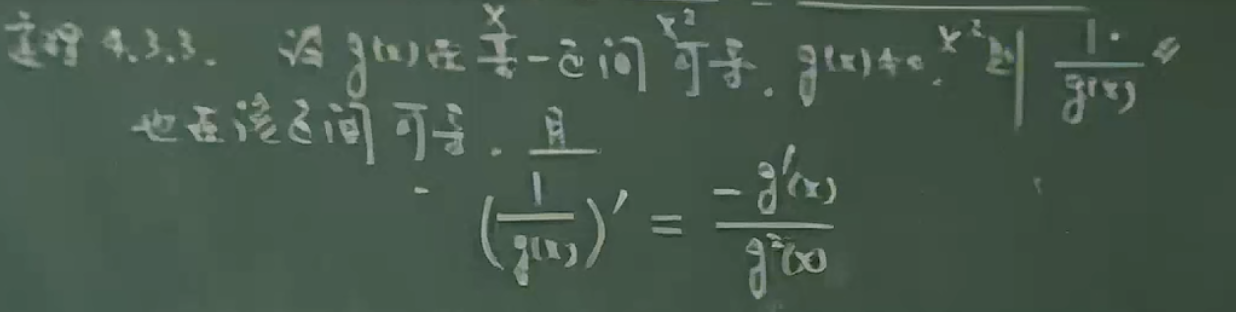 定理4.3.3. 设 g(x)在某一区间可导. g(x)≠0. 则 1/g(x)
也在该区间可导. 且
(1/g(x))' = -g'(x)/g²(x)